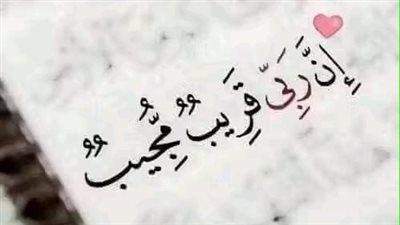 إِنَّ رَبِّيَ قِرَيبُُ مُّجِيبُُ